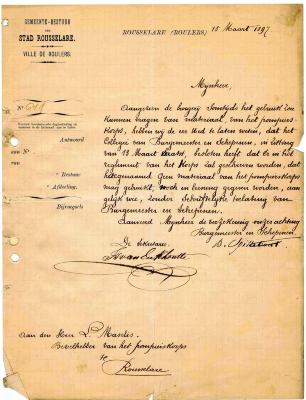 GEMEENTE-BESTUUR
VAN
STAD ROUSSELARE.
VILLE DE ROULERS.
ROUSSELARE (ROULERS) 15 Maart 1897
N°
Antwoord
Afdeeling.
Bijvoegsels
Mijnheer,
Aangezien de burgerij somtijds het gebruik
kunnen vragen van materiaal, van het pompiers
korps, hebben wij de eer Ued te laten weten, dat het
Collegie van Burgemeester en Schepenen, in zitting
van 13 Maart besloten heeft dat in het
reglement van het Korps zal geschreven worden, dat
Geen materiaal van het pompierskorps
mag gebruikt, noch en leening gegeven worden, aan
gelijk wie, zonder schriftelijke toelating van
Burgemeester en Schepenen.
Aanveerd Mijnheer de verzekering onzer achting
Burgemeester en Schepenen.
De Sekretaris
Aan den Heer L.
Bevelhebber van het pompierskorps
te
Rousselare